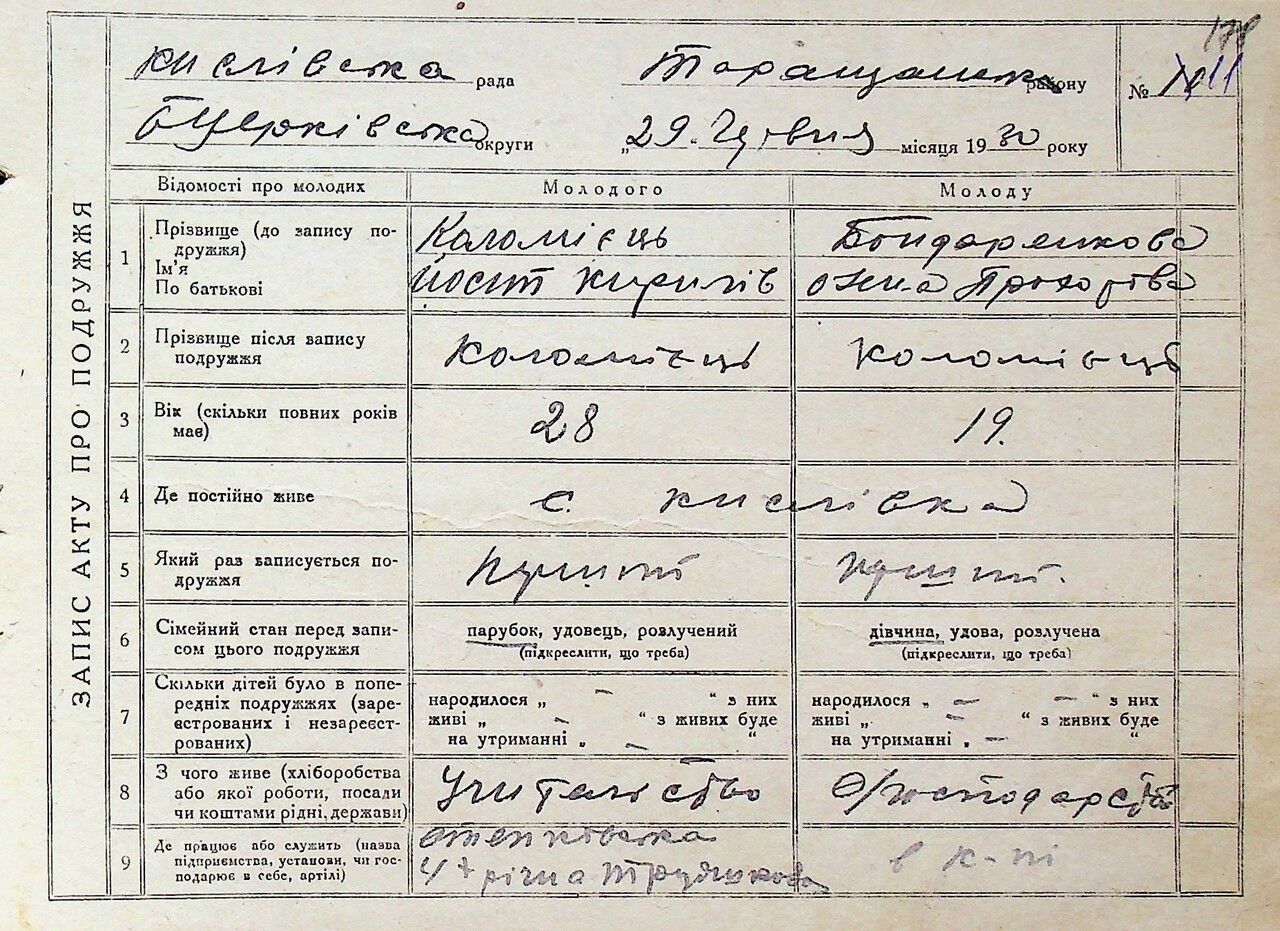 178
Кислівська рада Таращанськ району № 11
Бцерківська округи „29. Червня місяця 1930 року
ЗАПИС АКТУ ПРО ПОДРУЖЖЯ
Відомості про молодих Молодого Молоду
1 Прізвище (до запису по-
дружжя)
Ім'я
По батькові
Коломієць
Йосип Кирилів
Бондаренкова
Прохорівна
2 Прізвище після запису
подружжя
Коломієць
Коломієць
3 Вік (скільки повних років
має)
28
19.
4 Де постійно живе
с. Кислівка
5 Який раз записується по-
дружжя
Перший
Перший.
6 Сімейний стан перед запи-
сом цього подружжя
парубок, удовець, розлучений
(підкреслити, що треба)
дівчина, удова, розлучена
(підкреслити, що треба)
7 Скільки дітей було в попе-
редніх подружжях (заре-
єстрованих і незареєст-
рованих)
народилося „ — “ з них
живі „ — “ з живих буде
на утриманні „ — “
народилося „ — — “ з них
живі „ — “ з живих буде
на утриманні „ — “
8 З чого живе (хліборобства
або якої роботи, посади
чи коштами рідні, держави)
Учительство
С/господарство
9 Де працює або служить (назва
підприємства, установи, чи гос-
подарює в себе, артілі)
4х річна
в к-пі